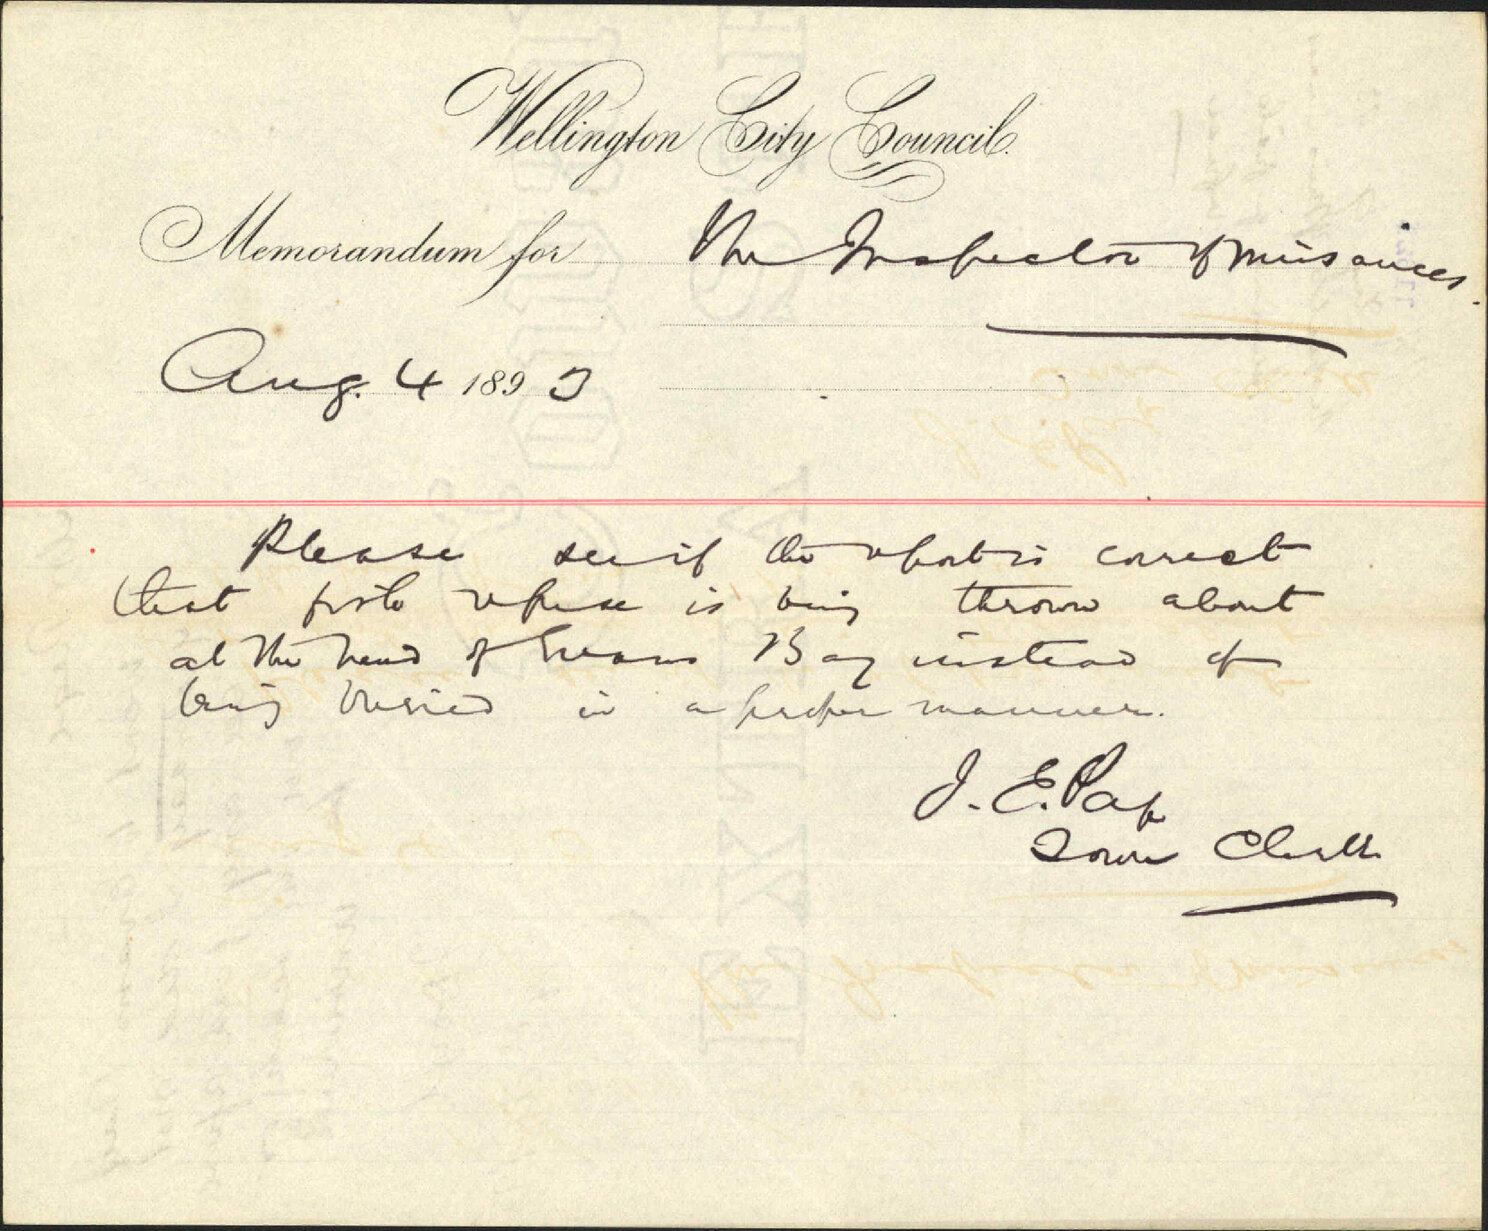 Wellington City Council.
Memorandum for the Inspector of Nuisances.
Aug. 4 1893
Please see if the report is correct
that fish refuse is being thrown about
at the head of Evans Bay instead of
being buried in a proper manner.
J. E. Page
Town Clerk